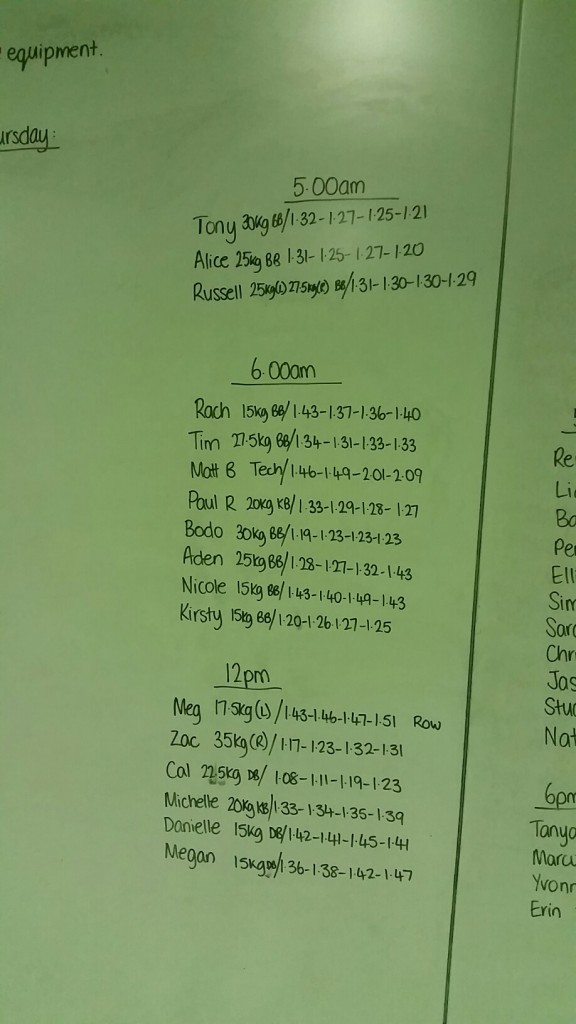 equipment.
ursday:
5.00am
Tony 30kg BB/1.32-1.27-1.25-1.21
Alice 25kg BB 1.31-1.25-1.27-1.20
Russell 25kg(L) 27.5kg(R) BB/1.31-1.30-1.30-1.29
6.00am
Rach 15kg BB/1.43-1.37-1.36-1.40
Tim 27.5kg BB/1.34-1.31-1.33-1.33
Matt B Tech/1.46-1.49-2.01-2.09
Paul R 20kg KB/1.33-1.29-1.28-1.27
Bodo 30kg BB/1.19-1.23-1.23-1.23
Aden 25kg BB/1.28-1.27-1.32-1.43
Nicole 15kg BB/1.43-1.40-1.49-1.43
Kirsty 15kg BB/1.20-1.26.1.27-1.25
12pm
Meg 17.5kg(L)/1.43-1.46-1.47-1.51 Row
Zac 35kg(R)/1.17-1.23-1.32-1.31
Cal 22.5kg DB/1.08-1.11-1.19-1.23
Michelle 20kg KB/1.33-1.34-1.35-1.39
Danielle 15kg DB/1.42-1.41-1.45-1.41
Megan 15kg DB/1.36-1.38-1.42-1.47
Re
Li
Bo
Pe
Ell
Sim
Sara
Chr
Jas
Stu
Nat
6pm
Tanya
Marcu
Yvonn
Erin